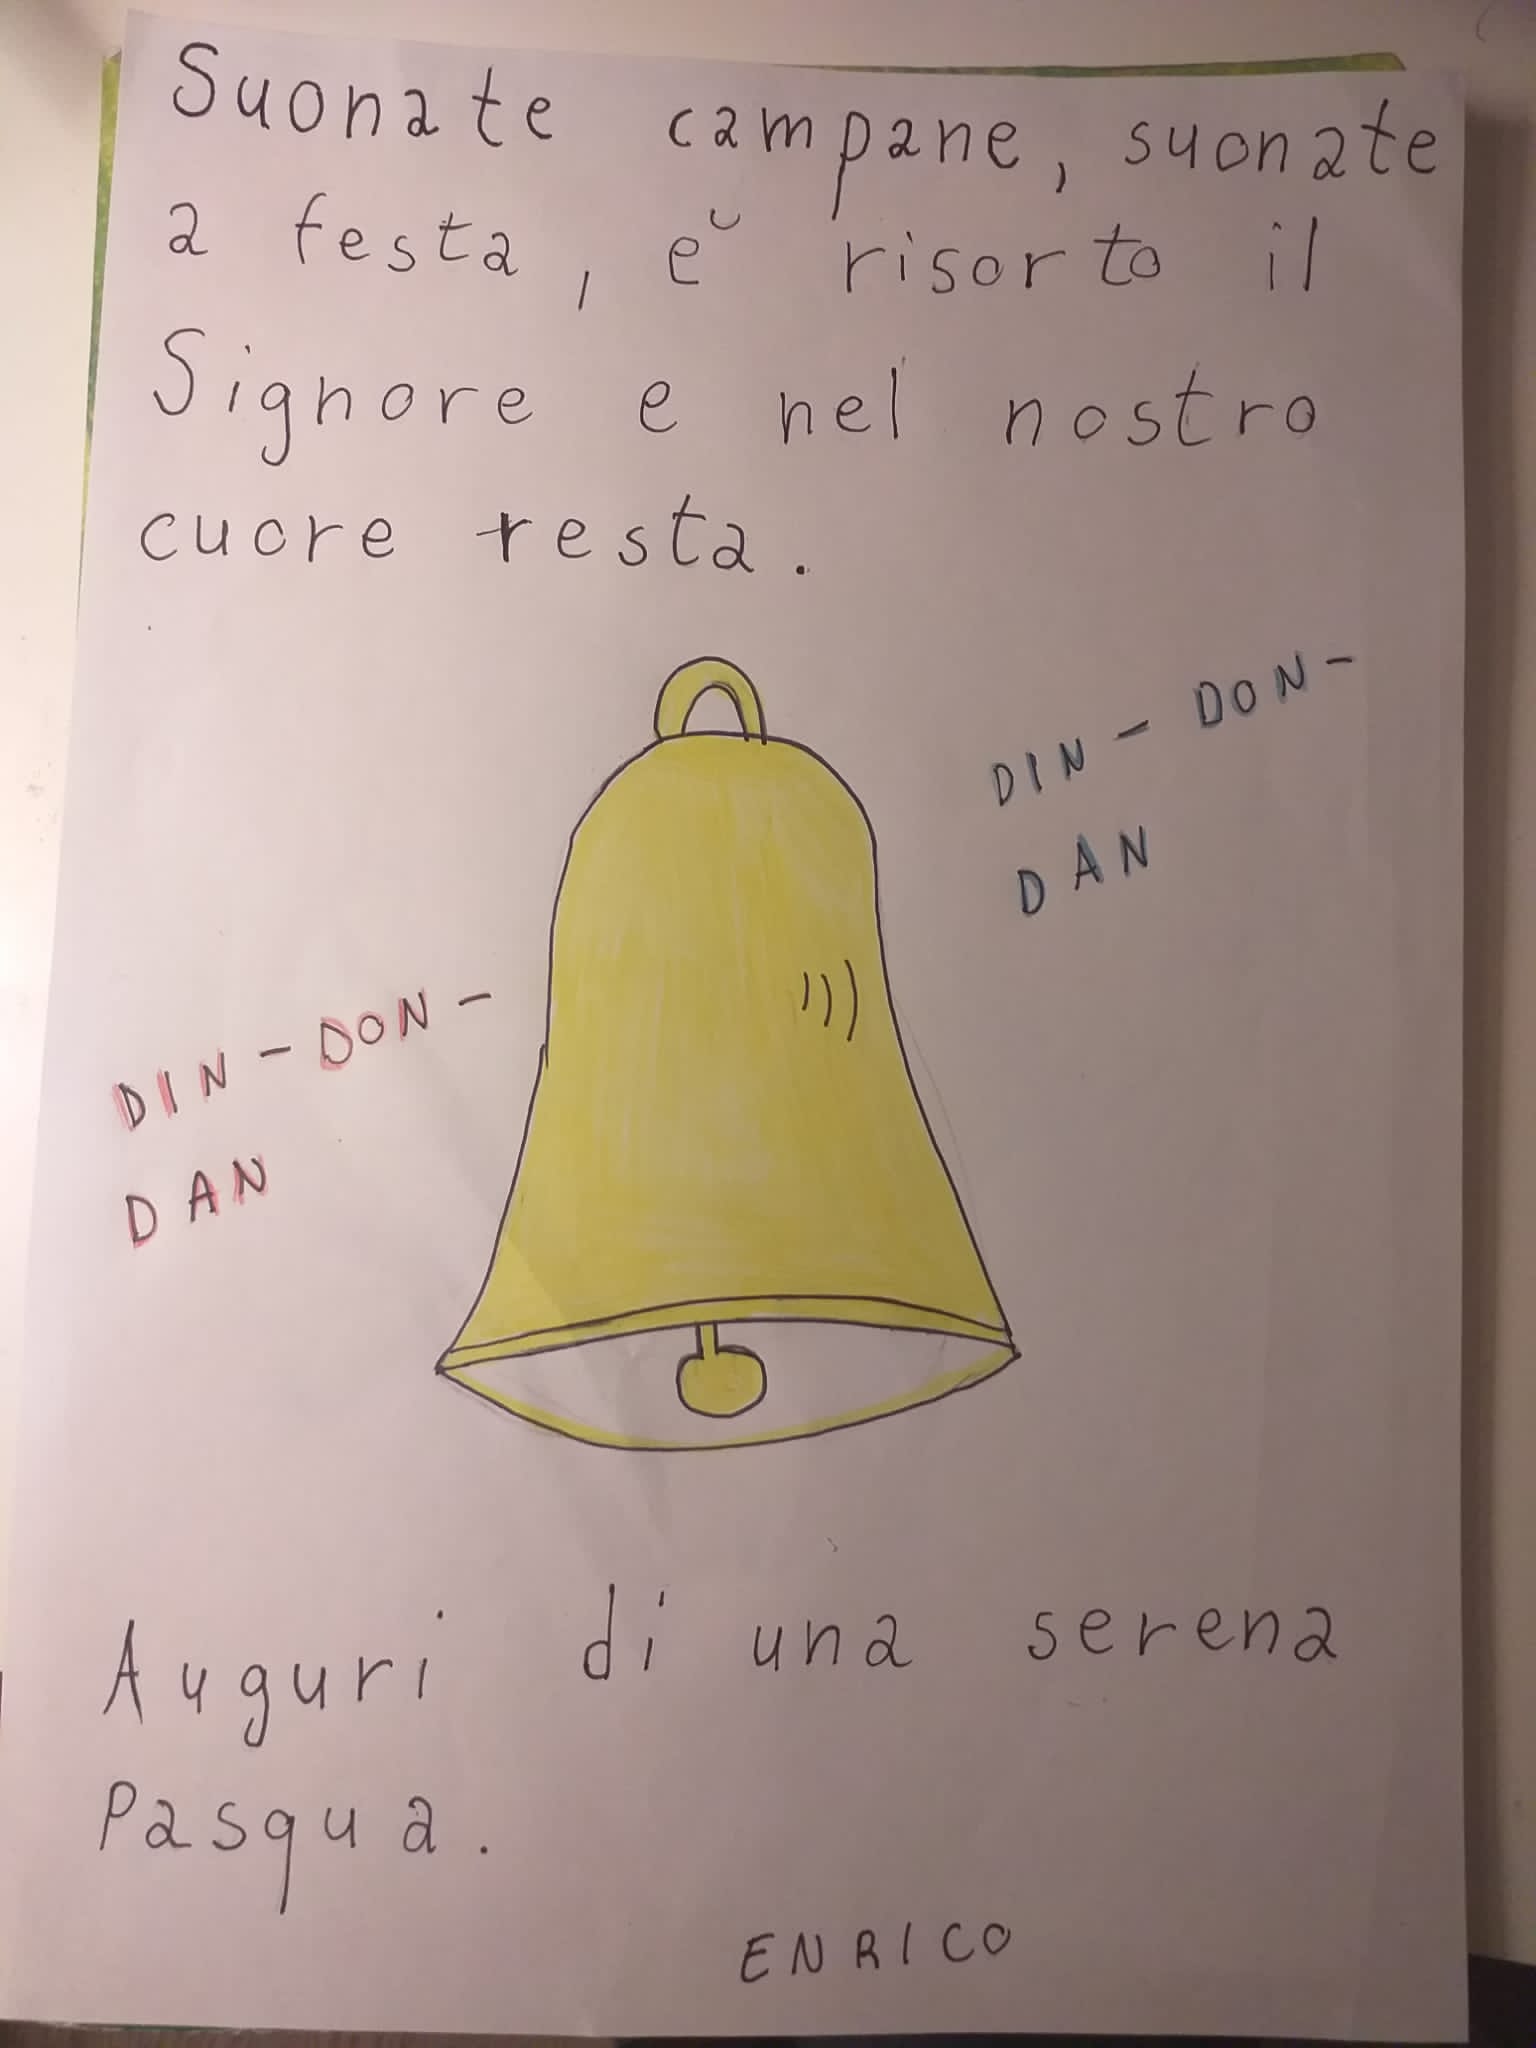 Suonate campane, suonate
a festa, è risorto il
Signore e nel nostro
cuore resta.
DIN - DON -
DAN
DIN - DON -
DAN
Auguri di una serena
Pasqua.
ENRICO